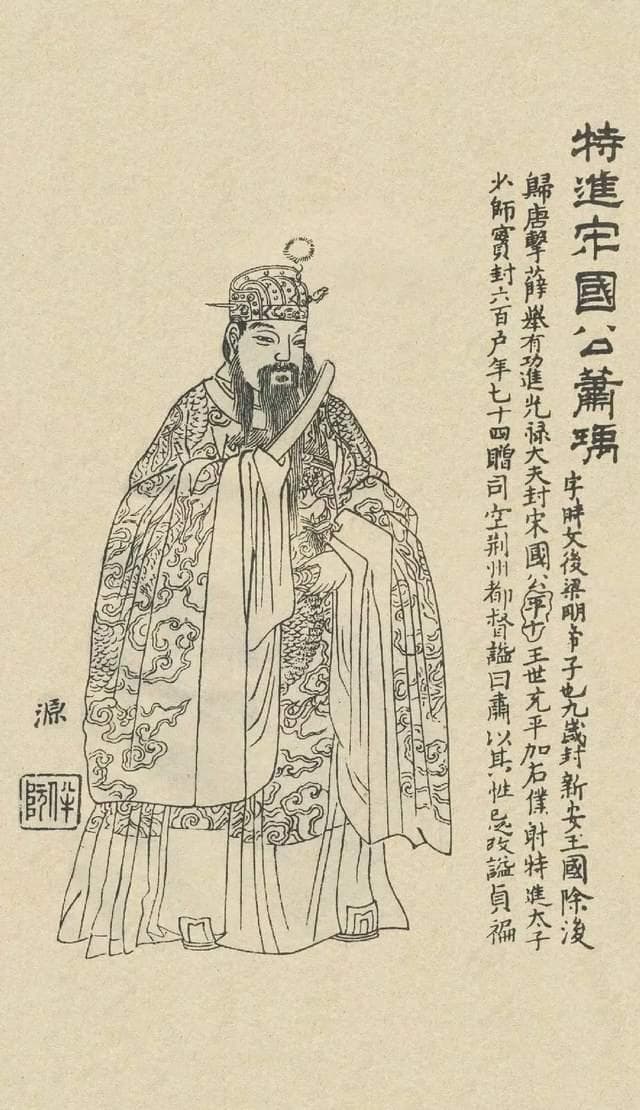 特進宋國公蕭瑀
字時文後梁明帝子也九歲封新安王國除後
歸唐擊薛舉有功進光祿大夫封宋國公王世充平加右僕射特進太子
少師實封六百户年七十四贈司空荆州都督謚曰肅以其性忌改謚貞褊
源